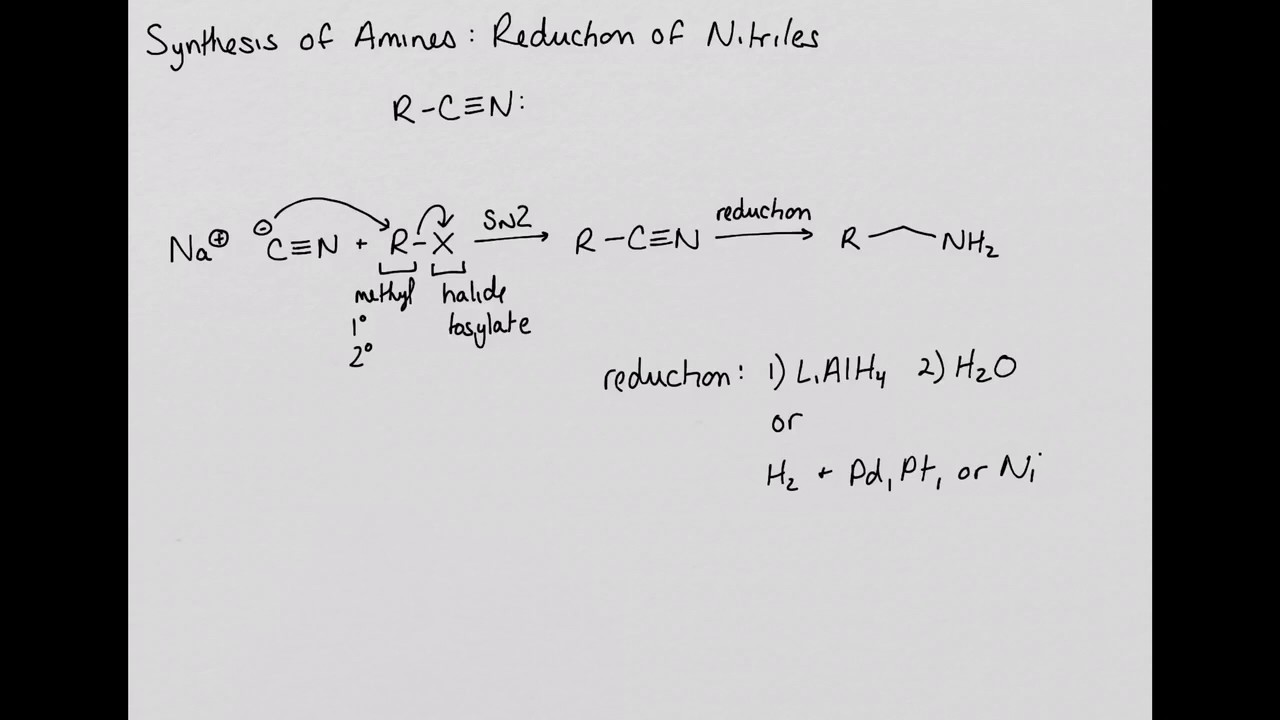 Synthesis of Amines: Reduction of Nitriles
R-C≡N:
Na⊕ ⊖C≡N + R-X SN2 R-C≡N reduction R NH₂
methyl halide
1° tosylate
2°
reduction: 1) LiAlH₄ 2) H₂O
or
H₂ + Pd, Pt, or Ni